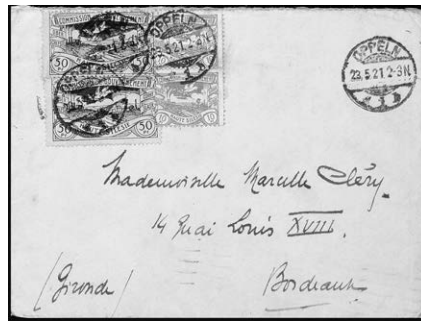 COMMISSION
50
50
50
10
10
OPPELN
OPPELN
23.5.21.2-3N
Mademoiselle Marcelle Cléry.
14 Quai Louis XVIII.
(Gironde)
Bordeaux